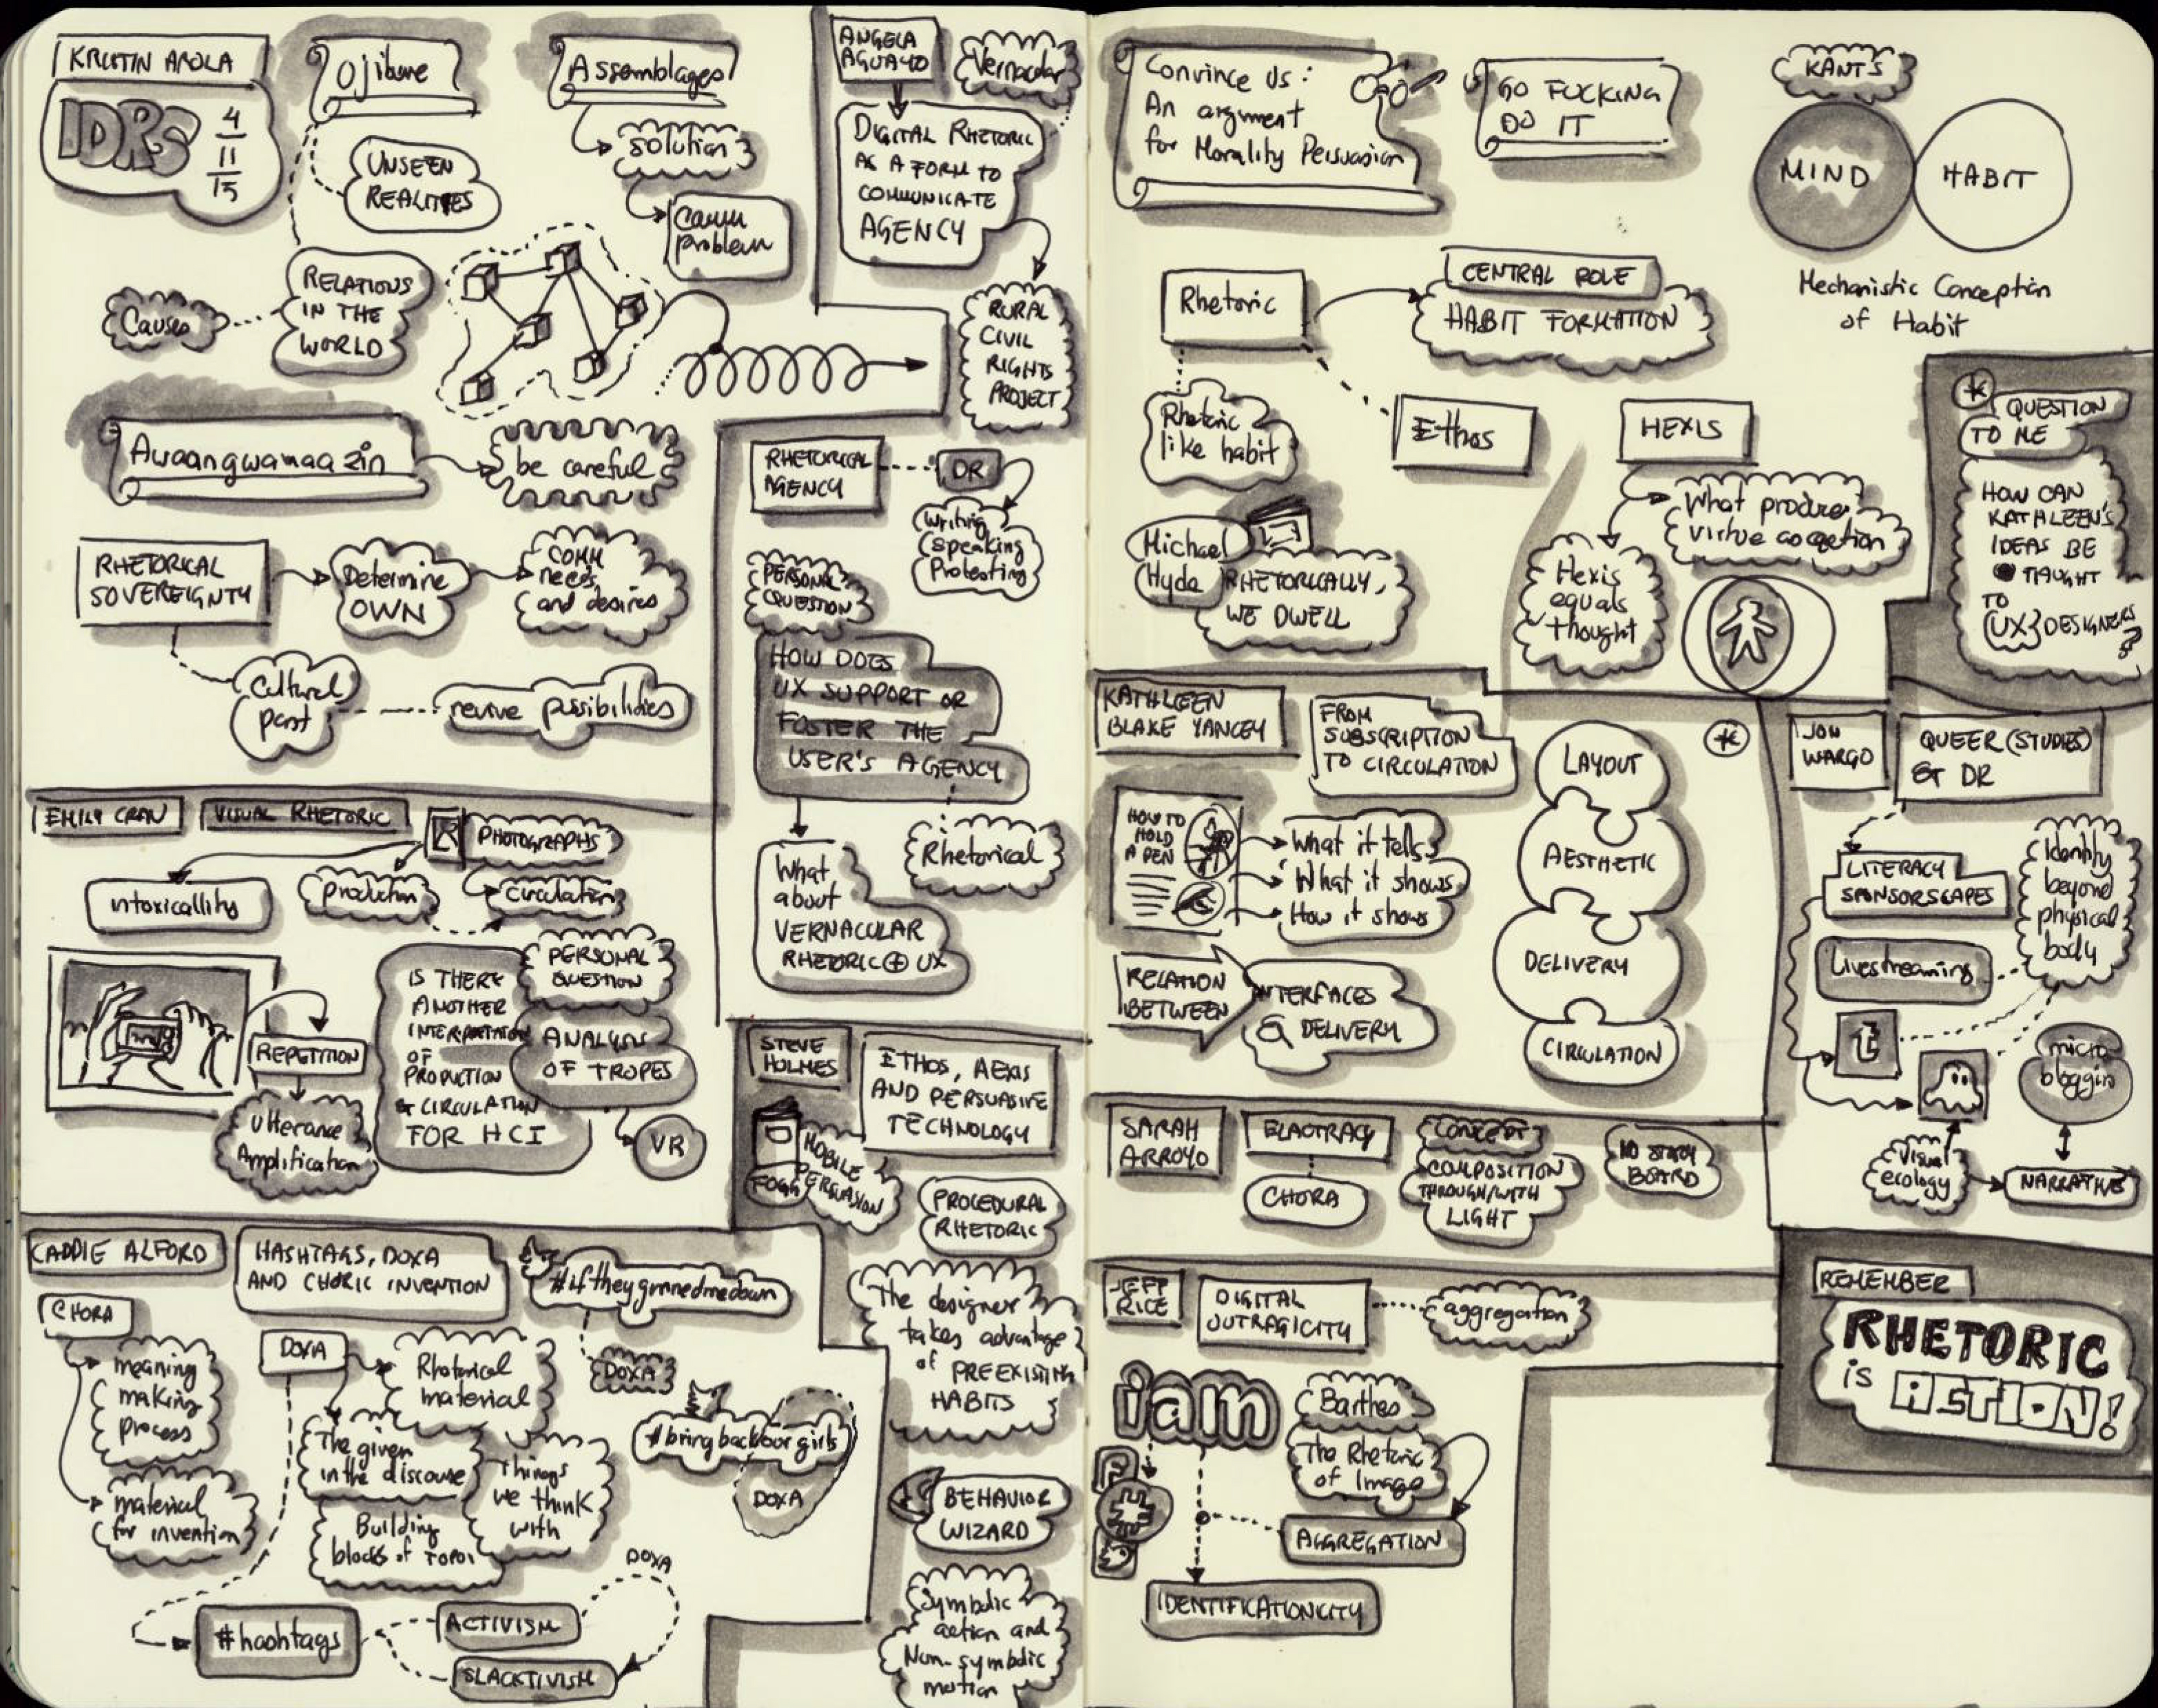 KRISTIN AROLA
IDRS
4
11
15
Ojibwe
UNSEEN
REALITIES
RELATIONS
IN THE
WORLD
Causes
Assemblages
solution
comm
problem
Awaangwamaazin
be careful
RHETORICAL
SOVEREIGNTY
Determine
OWN
COMM
needs
and desires
Cultural
past
revive possibilities
ANGELA
AGUAYO
Vernacular
DIGITAL RHETORIC
AS A FORM TO
COMMUNICATE
AGENCY
RURAL
CIVIL
RIGHTS
PROJECT
RHETORICAL
AGENCY
DR
Writing
Speaking
Protesting
PERSONAL
QUESTION
HOW DOES
UX SUPPORT OR
FOSTER THE
USER'S AGENCY
Rhetorical
What
about
VERNACULAR
RHETORIC + UX
EMILY CRAN
VISUAL RHETORIC
R
PHOTOGRAPHS
intoxicallity
production
circulation
REPETITION
Utterance
Amplification
IS THERE
ANOTHER
INTERPRETATION
OF
PRODUCTION
& CIRCULATION
FOR HCI
PERSONAL
QUESTION
ANALYSIS
OF TROPES
VR
STEVE
HOLMES
ETHOS, AEXIS
AND PERSUASIVE
TECHNOLOGY
FOGG
MOBILE
PERSUASION
PROCEDURAL
RHETORIC
The designer
takes advantage
of PREEXISTING
HABITS
BEHAVIOR
WIZARD
Symbolic
action and
Non-symbolic
motion
CADDIE ALFORD
HASHTAGS, DOXA
AND CHORIC INVENTION
#iftheygunnedmedown
CHORA
meaning
making
process
material
for invention
DOXA
Rhetorical
material
The given
in the discourse
Things
we think
with
Building
blocks of TOPOI
DOXA
#bringbackourgirls
DOXA
#hashtags
ACTIVISM
SLACKTIVISM
DOXA
Convince Us:
An argument
for Morality Persuasion
GO FUCKING
DO IT
KANT'S
MIND
HABIT
Mechanistic Conception
of Habit
Rhetoric
CENTRAL ROLE
HABIT FORMATION
Rhetoric
like habit
Ethos
HEXIS
What produce
virtue cognition
Hexis
equals
thought
Michael
Hyde
RHETORICALLY,
WE DWELL
* QUESTION
TO ME
HOW CAN
KATHLEEN'S
IDEAS BE
TAUGHT
TO
UX DESIGNERS
?
KATHLEEN
BLAKE YANCEY
FROM
SUBSCRIPTION
TO CIRCULATION
*
HOW TO
HOLD
A PEN
What it tells
What it shows
How it shows
RELATION
BETWEEN
INTERFACES
& DELIVERY
LAYOUT
AESTHETIC
DELIVERY
CIRCULATION
JON
WARGO
QUEER (STUDIES)
& DR
LITERACY
SPONSORSCAPES
Identity
beyond
physical
body
Livestreaming
t
micro
bloggin
Visual
ecology
NARRATIVE
SARAH
ARROYO
ELACTRACY
CHORA
CONCEPT
COMPOSITION
THROUGH/WITH
LIGHT
NO STORY
BOARD
JEFF
RICE
DIGITAL
OUTRAGICITY
aggregation
iam
F
#
Barthes
The Rhetoric
of Image
AGGREGATION
IDENTIFICATIONICITY
REMEMBER
RHETORIC
is ACTION!